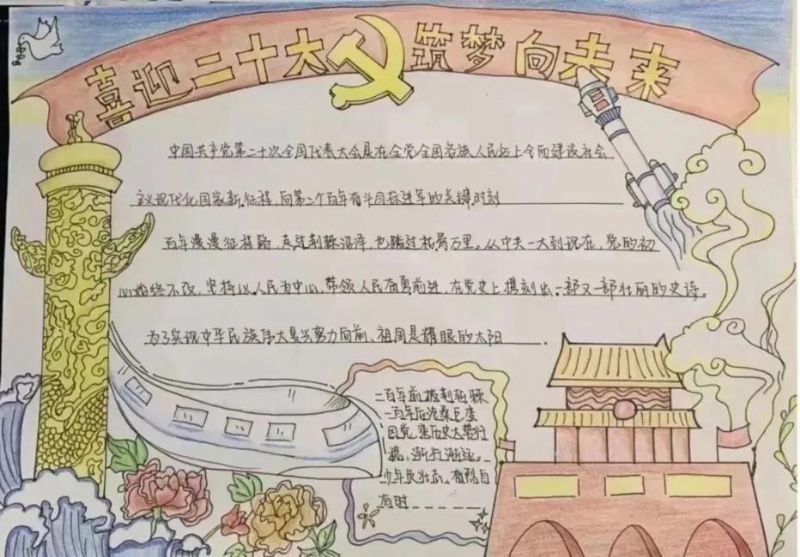 喜迎二十大 筑梦向未来
中国共产党第二十次全国代表大会是在全党全国各族人民迈上全面建设社会
主义现代化国家新征程,向第二个百年奋斗目标进军的关键时刻
百年漫漫征程路,走过荆棘沼泽,也踏过花香万里。从中共一大到现在,党的初
心始终不改,坚持以人民为中心,带领人民奋勇前进,在党史上镌刻出一部又一部壮丽的史诗。
为了实现中华民族伟大复兴努力向前、祖国是耀眼的太阳
二百年前披荆斩棘
一百年后沧桑巨变
国党
少年
有时